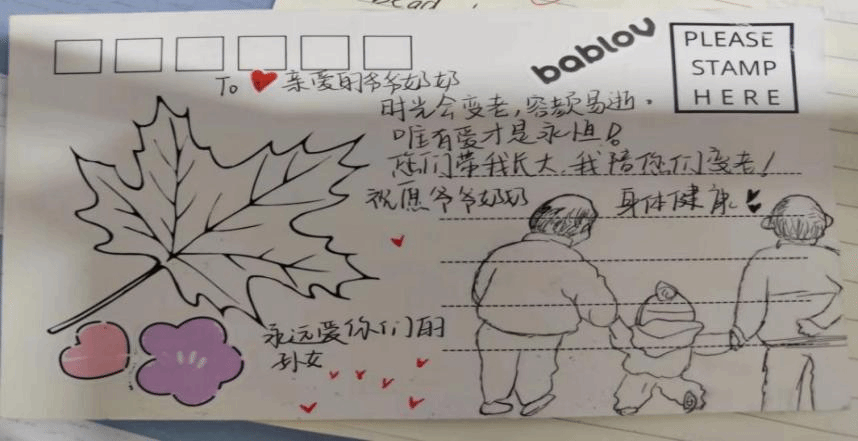 bablov
PLEASE
STAMP
HERE
To 亲爱的爷爷奶奶
时光会变老，容颜易逝。
唯有爱才是永恒！
您们带我长大，我陪您们变老！
祝愿爷爷奶奶 身体健康
永远爱你们的
孙女